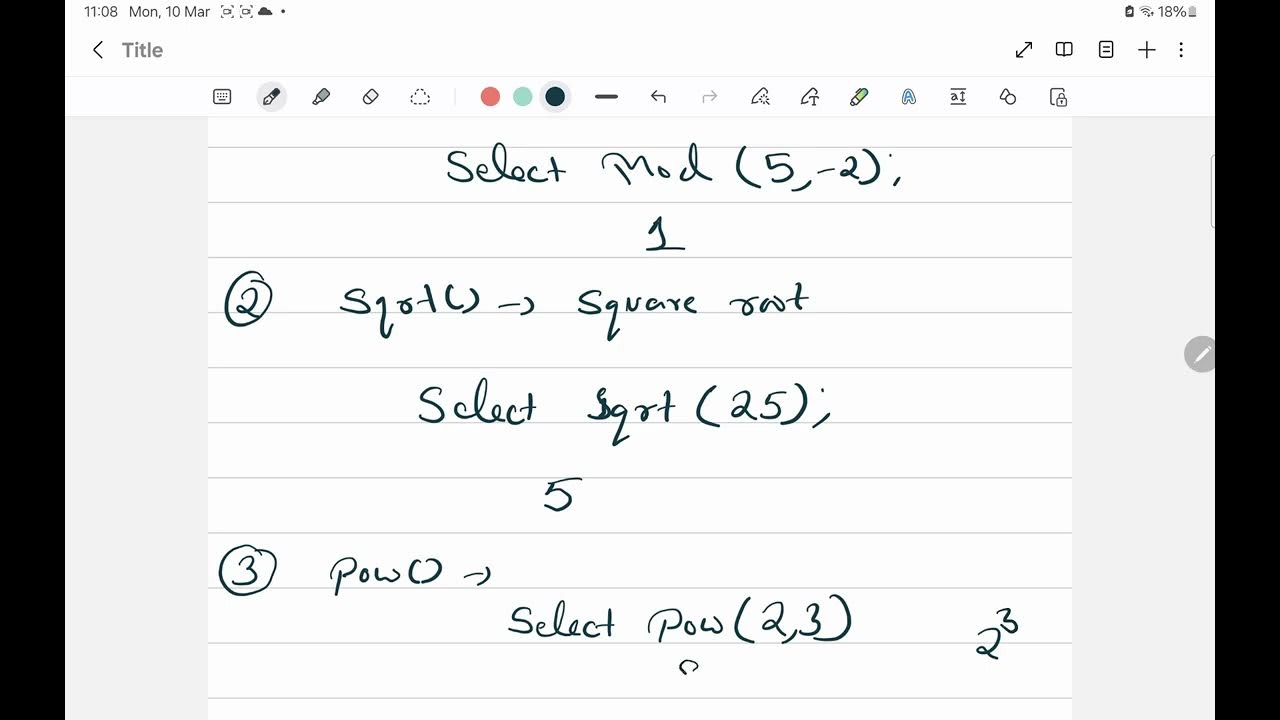 11:08 Mon, 10 Mar 18%
Title
Select Mod (5,-2);
1
2 Sqrt() → Square root
Select Sqrt (25);
5
3 Pow() →
Select Pow (2,3) 2³